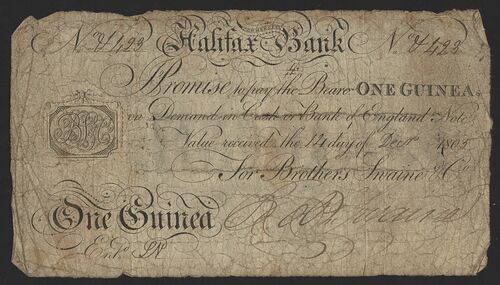 No. 4423 Halifax Bank No. 4423
I Promise to pay the Bearer ONE GUINEA
on Demand in Cash or Bank of England Note
Value received the 14 day of Decr 1805
For Brothers Swaine & Co
One Guinea
Entd